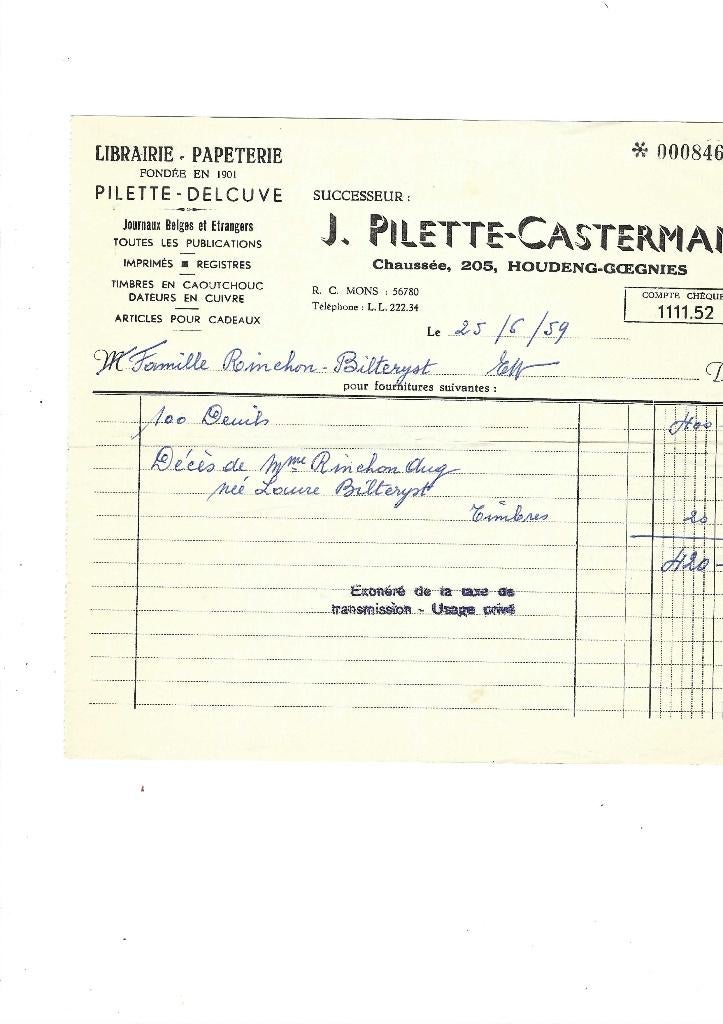 LIBRAIRIE - PAPETERIE
FONDÉE EN 1901
PILETTE-DELCUVE
Journaux Belges et Etrangers
TOUTES LES PUBLICATIONS
IMPRIMÉS ■ REGISTRES
TIMBRES EN CAOUTCHOUC
DATEURS EN CUIVRE
ARTICLES POUR CADEAUX
* 000846
SUCCESSEUR :
J. PILETTE-CASTERMAN
Chaussée, 205, HOUDENG-GŒGNIES
R. C. MONS : 56780
Téléphone : L.L. 222.34
COMPTE CHÈQUE
1111.52
Le 25/6/59
M Famille Rinchon-Bilteryst D
pour fournitures suivantes :
100 Deuils 400
Décès de Mme Rinchon Aug
née Laure Bilteryst
Timbres 20
420 -
Exonéré de la taxe de
transmission - Usage privé